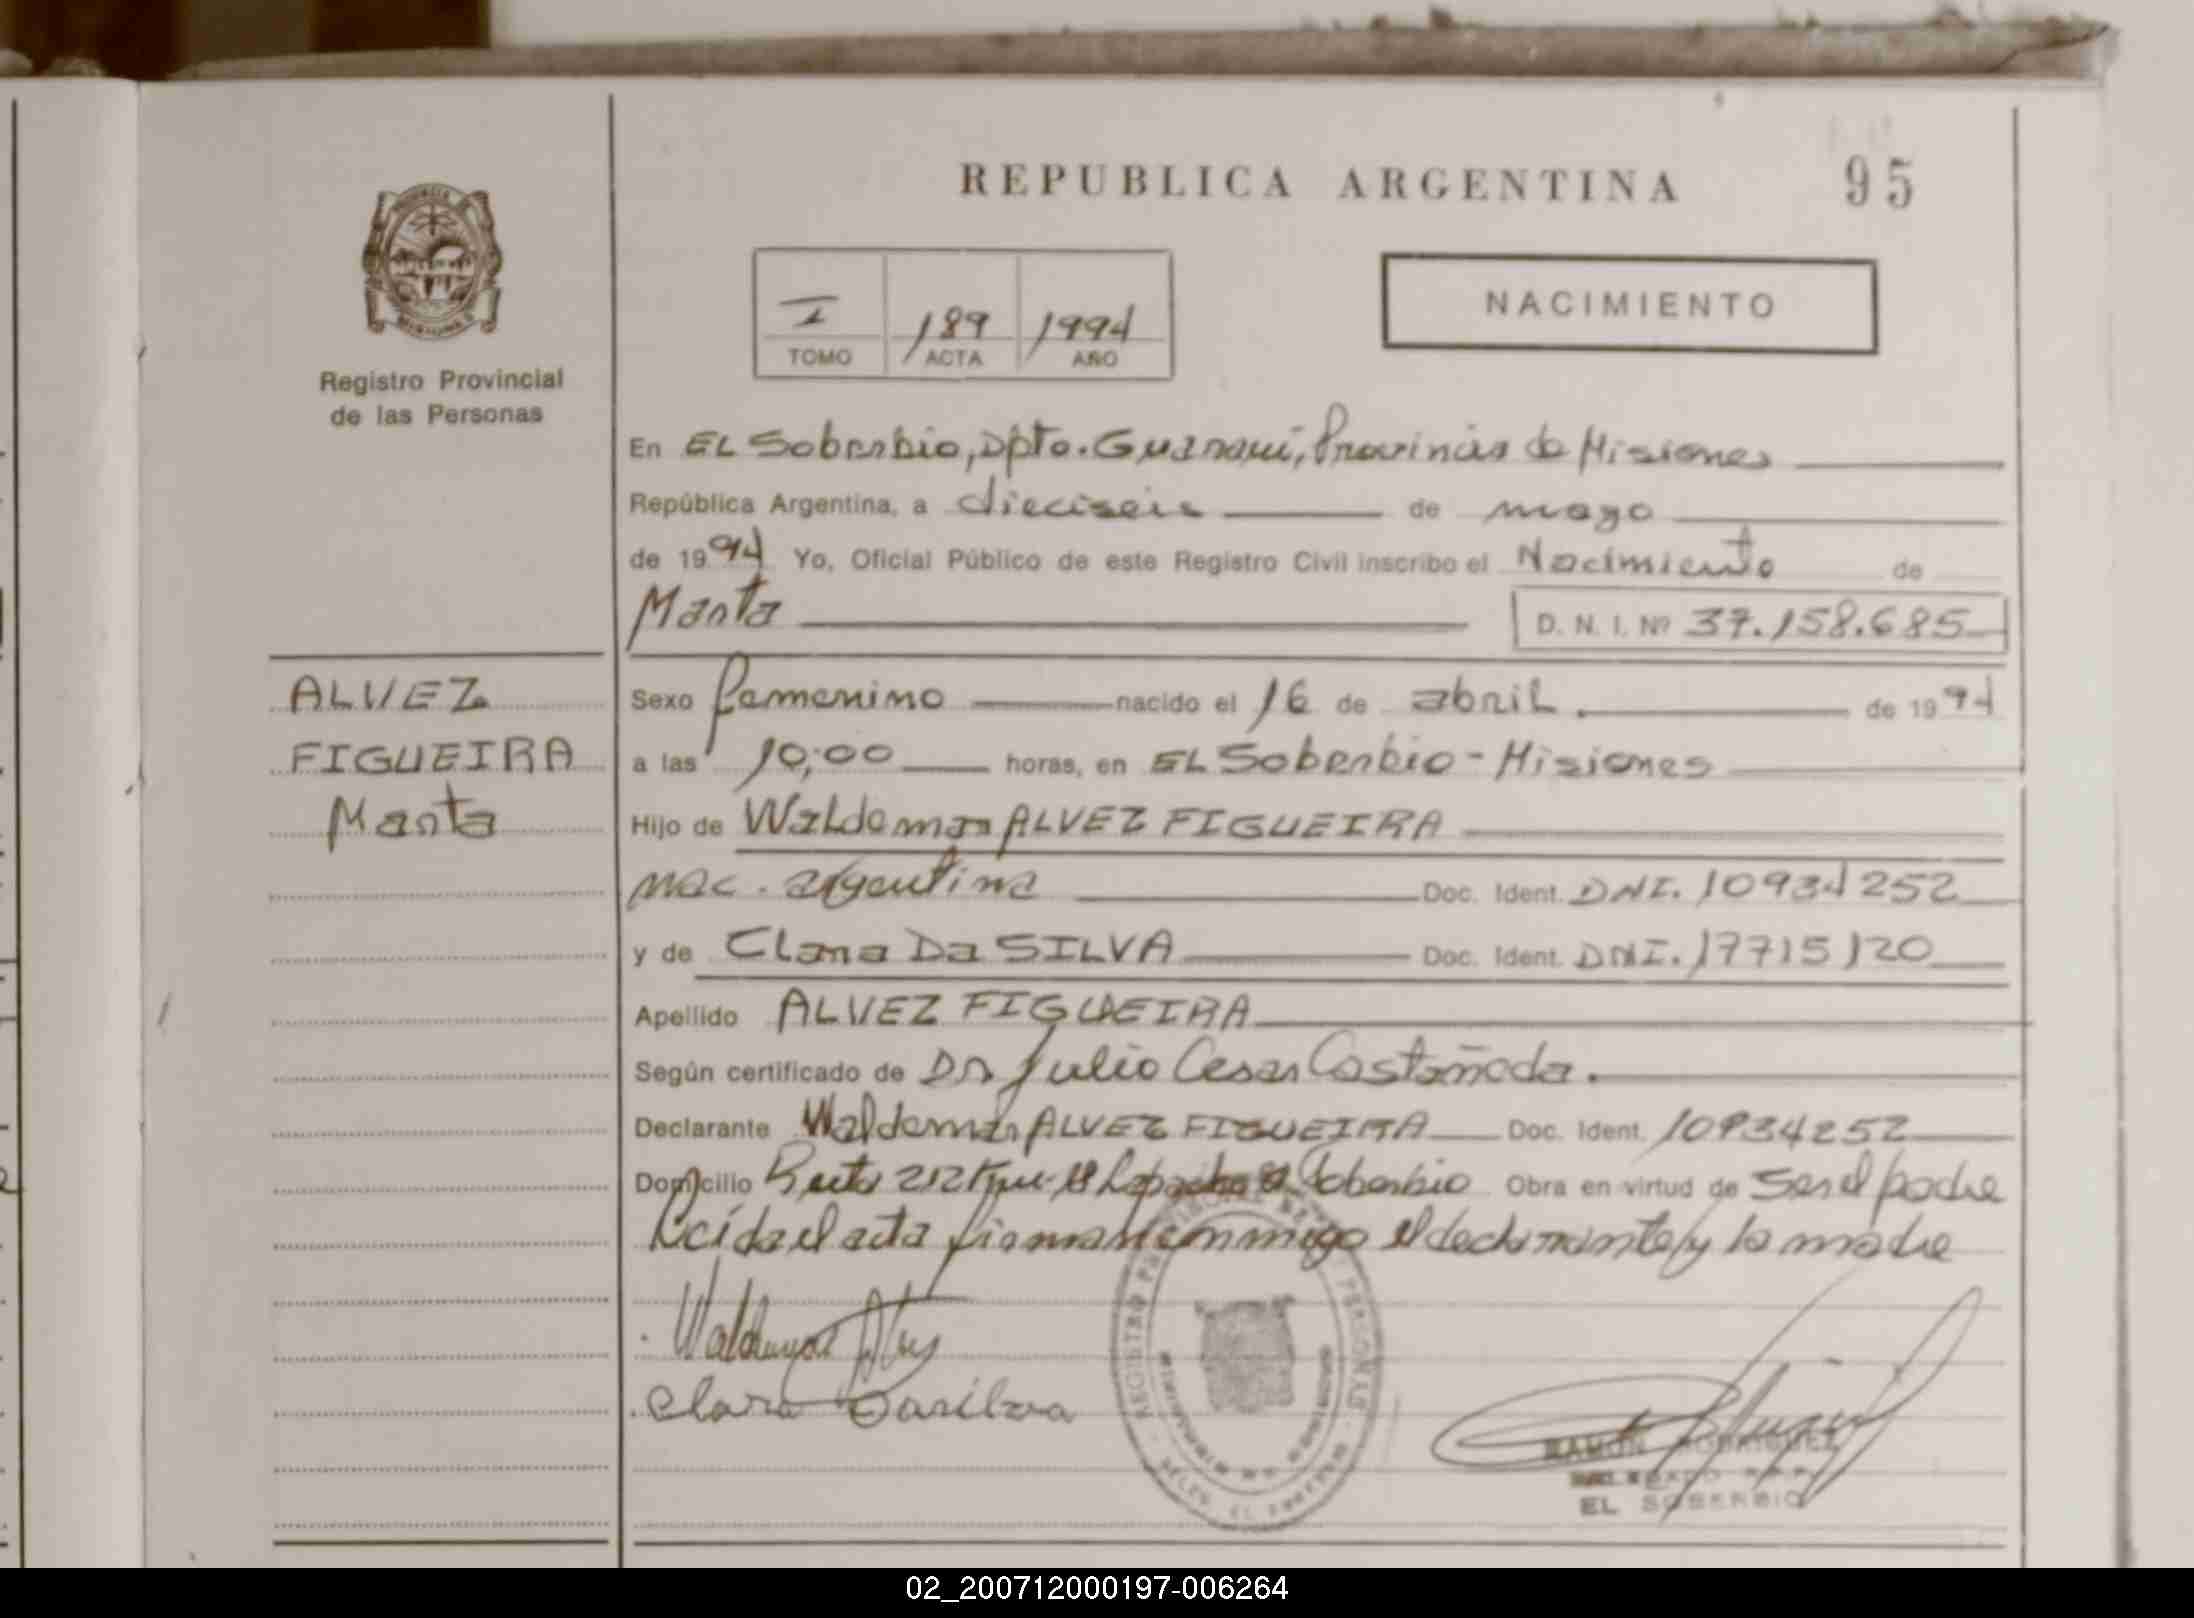 REPUBLICA ARGENTINA
95
I 189 1994
TOMO ACTA AÑO
NACIMIENTO
Registro Provincial
de las Personas
En EL Soberbio, Dpto. Guaraní, Provincia de Misiones
República Argentina, a dieciseis de mayo
de 1994 Yo, Oficial Público de este Registro Civil inscribo el Nacimiento de
Marta D. N. I. Nº 37.158.685
ALVEZ
FIGUEIRA
Marta
Sexo femenino nacido el 16 de abril. de 1994
a las 10,00 horas, en EL Soberbio - Misiones
Hijo de Waldemar ALVEZ FIGUEIRA
nac. argentina Doc. Ident. DNI. 10934252
y de Clara Da SILVA Doc. Ident. DNI. 17715120
Apellido ALVEZ FIGUEIRA
Según certificado de Dr. Julio Cesar Castañeda.
Declarante Waldemar ALVEZ FIGUEIRA Doc. Ident. 10934252
Domicilio Ruta 212 Km. El Soberbio Obra en virtud de Ser el padre
Leída el acta firman conmigo el declarante y la madre
Waldemar
Clara Dasilva
REGISTRO PERSONAS
RAMON RODRIGUEZ
EL SOBERBIO
02_200712000197-006264